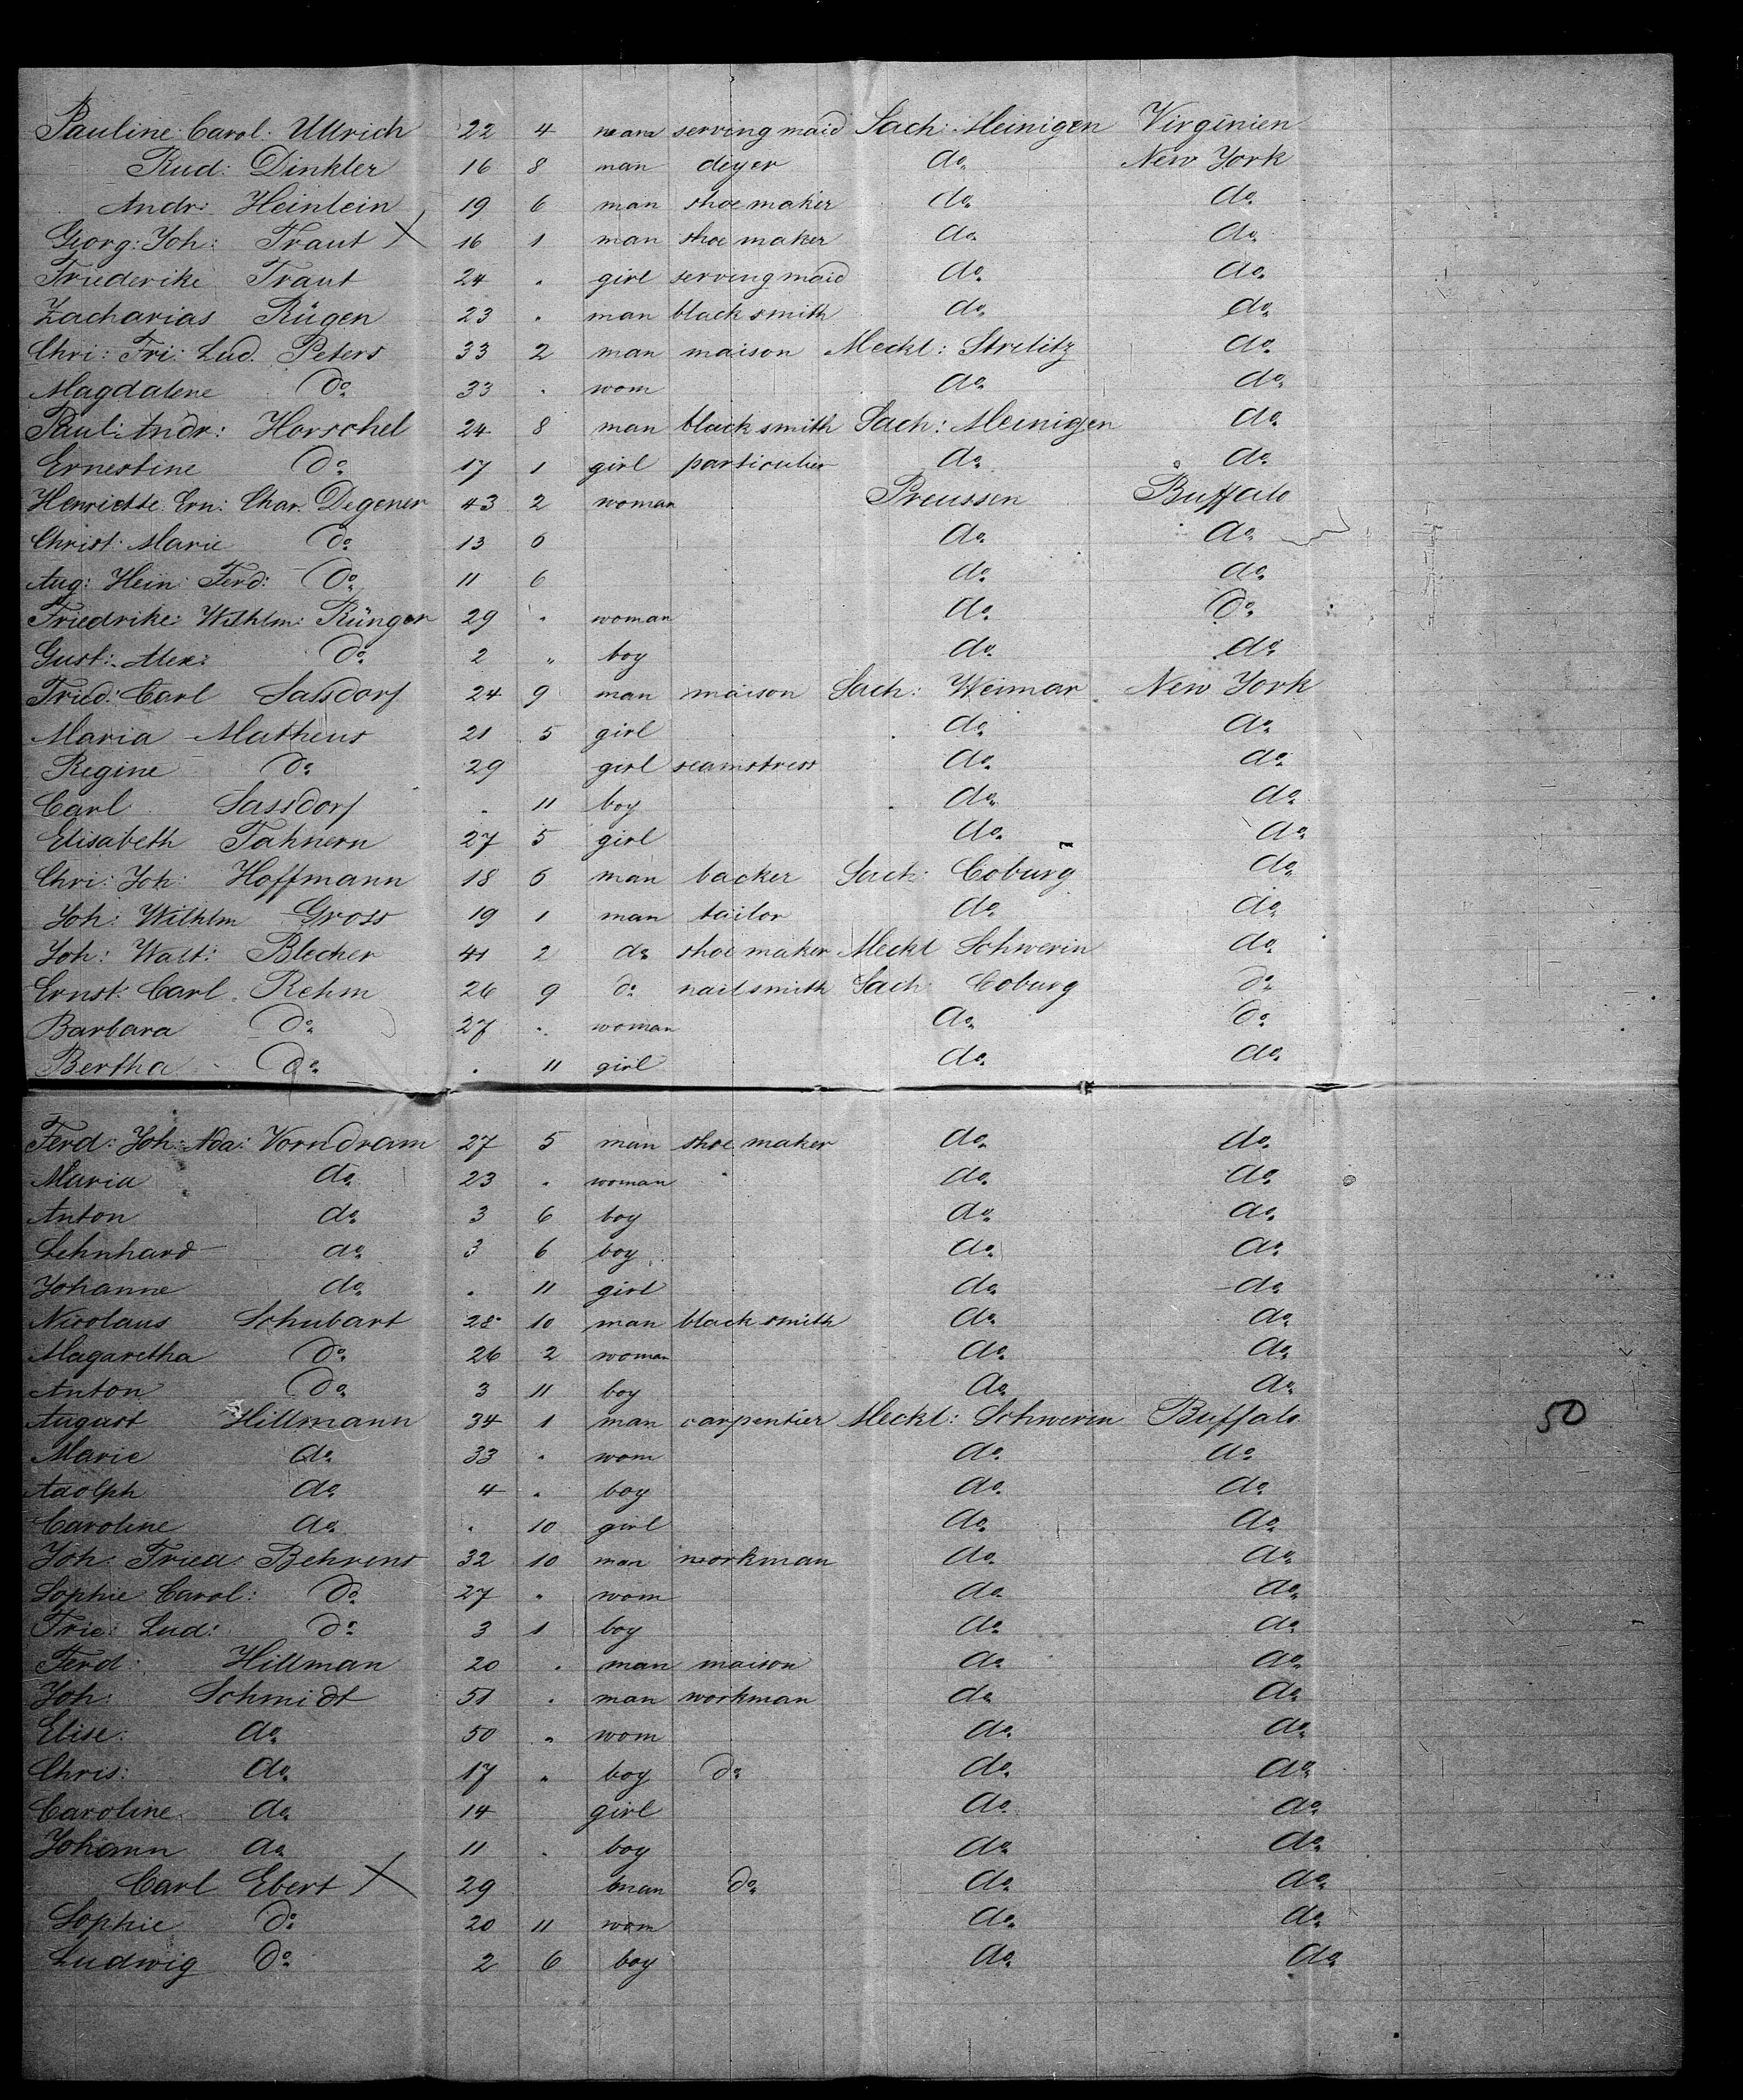 Pauline Carol: Ullrich 22 4 serving maid Sach: Meinigen Virginien
Rud: Dinkler 16 8 man deyer do New York
Andr: Heinlein 19 6 man shoe maker do do
Georg: Joh: Traut X 16 1 man shoe maker do do
Friederike Traut 24 " girl serving maid do do
Zacharias Rügen 23 " man black smith do do
Chri: Fri: Lud. Peters 33 2 man maison Meckl: Strelitz do
Magdalene do 33 " wom do do
Paul: Andr: Horschel 24 8 man black smith Sach: Meinigen do
Ernestine do 17 1 girl particulier do do
Henriette Ern: Char. Degener 43 2 woman Preussen Buffalo
Christ: Marie do 13 6 do do
Aug: Hein: Ferd: do 11 6 do do
Friedrike: Wilhlm: Rünger 29 " woman do do
Gust: Alex: do 2 " boy do do
Fried: Carl Sassdorf 24 9 man maison Sach: Weimar New York
Maria Matheus 21 5 girl do do
Regine do 29 girl seamstress do do
Carl Sassdorf " 11 boy do do
Elisabeth Tahnern 27 5 girl do do
Chri: Joh: Hoffmann 18 6 man backer Sach: Coburg do
Joh: Wilhlm Gross 19 1 man tailor do do
Joh: Walt: Blecher 41 2 do shoe maker Meckl Schwerin do
Ernst: Carl. Rehm 26 9 do nail smith Sach: Coburg do
Barbara do 27 " woman do do
Bertha do " 11 girl do do
Ferd: Joh: Ada: Vorndram 27 5 man shoe maker do do
Maria do 23 " woman do do
Anton do 3 6 boy do do
Lehnhard do 3 6 boy do do
Johanne do " 11 girl do do
Nicolaus Schubart 28 10 man black smith do do
Magaretha do 26 2 woman do do
Anton do 3 11 boy do do
August Hillmann 34 1 man carpentier Meckl: Schwerin Buffalo 50
Marie do 33 " wom do do
Adolph do 4 " boy do do
Caroline do " 10 girl do do
Joh: Fried: Behrens 32 10 man workman do do
Sophie Carol: do 27 " wom do do
Frie: Lud: do 3 1 boy do do
Ferd: Hillman 20 " man maison do do
Joh: Schmidt 51 " man workman do do
Elise: do 50 " wom do do
Chris: do 17 " boy do do do
Caroline do 14 girl do do
Johann do 11 " boy do do
Carl Ebert X 29 man do do do
Sophie do 20 11 wom do do
Ludwig do 2 6 boy do do